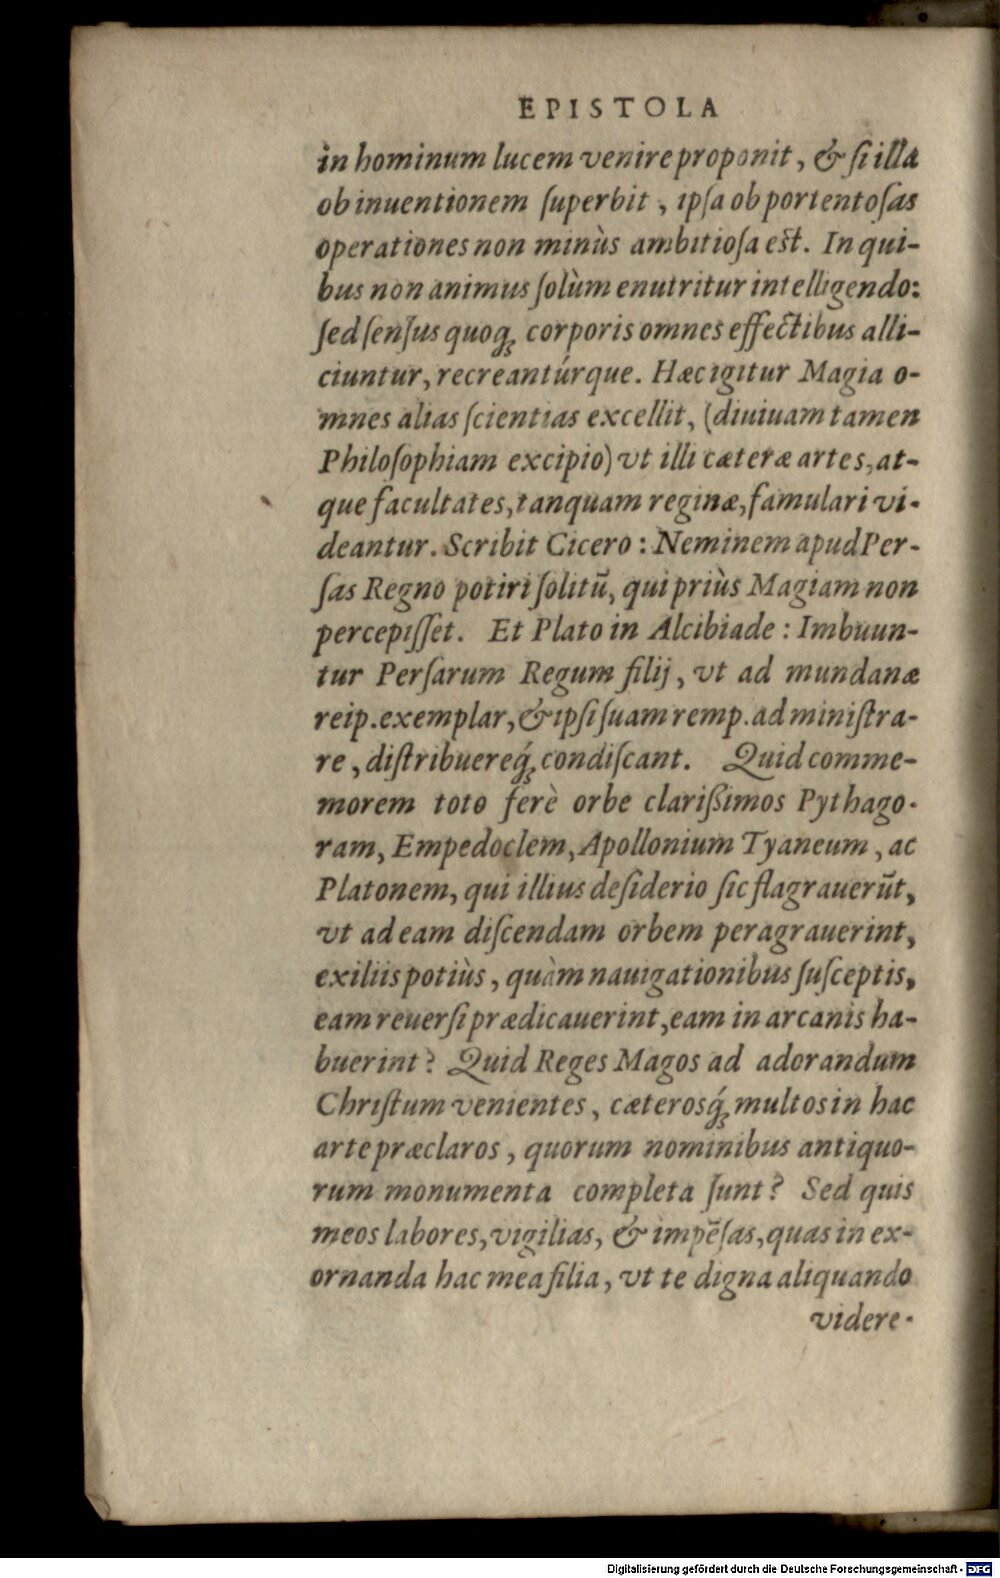 EPISTOLA
in hominum lucem venire proponit, & ſi illa
ob inuentionem ſuperbit, ipſa ob portentoſas
operationes non minùs ambitioſa eſt. In qui-
bus non animus ſolùm enutritur intelligendo:
ſed ſenſus quoq; corporis omnes effectibus alli-
ciuntur, recreantúrque. Hæc igitur Magia o-
mnes alias ſcientias excellit, (diuiuam tamen
Philoſophiam excipio) vt illi cæteræ artes, at-
que facultates, tanquam reginæ, famulari vi-
deantur. Scribit Cicero: Neminem apud Per-
ſas Regno potiri ſolitũ, qui priùs Magiam non
percepiſſet. Et Plato in Alcibiade: Imbuun-
tur Perſarum Regum filij, vt ad mundanæ
reip. exemplar, & ipſi ſuam remp. adminiſtra-
re, diſtribuereq́; condiſcant. Quid comme-
morem toto ferè orbe clarißimos Pythago-
ram, Empedoclem, Apollonium Tyaneum, ac
Platonem, qui illius deſiderio ſic flagrauerũt,
vt ad eam diſcendam orbem peragrauerint,
exiliis potiùs, quàm nauigationibus ſuſceptis,
eam reuerſi prædicauerint, eam in arcanis ha-
buerint? Quid Reges Magos ad adorandum
Chriſtum venientes, cæterosq́; multos in hac
arte præclaros, quorum nominibus antiquo-
rum monumenta completa ſunt? Sed quis
meos labores, vigilias, & impẽſas, quas in ex-
ornanda hac mea filia, vt te digna aliquando
videre-
Digitalisierung gefördert durch die Deutsche Forschungsgemeinschaft - DFG